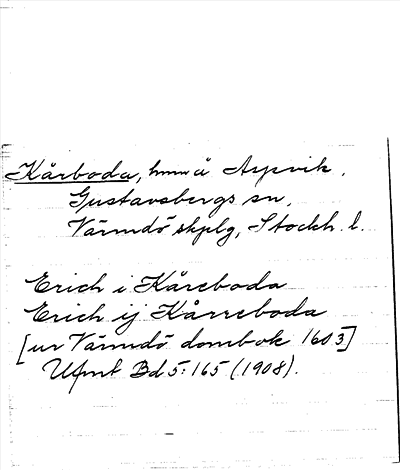 Kårboda, hmn å Aspvik.
Gustavsbergs sn,
Värmdö skplg, Stockh. l.
Erich i Kåreboda
Erich ij Kårreboda
[ur Värmdö dombok 1603]
Ufmt Bd 5:165 (1908).